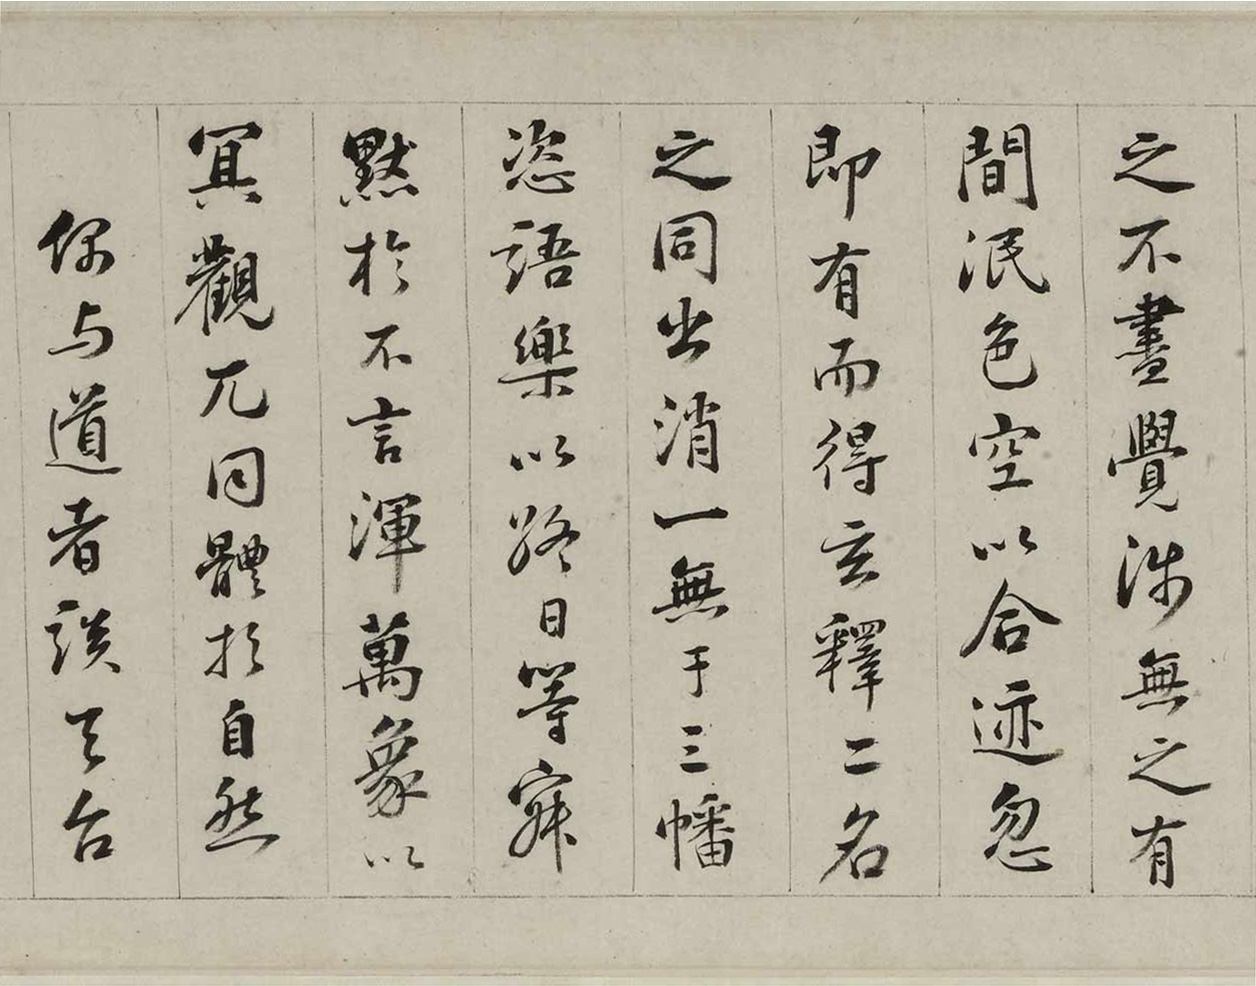 之不盡覺涉無之有
間泯色空以合迹忽
即有而得玄釋二名
之同出消一無于三幡
恣語樂以終日等寂
默於不言渾萬象以
冥觀兀同體於自然
偶与道者談天台